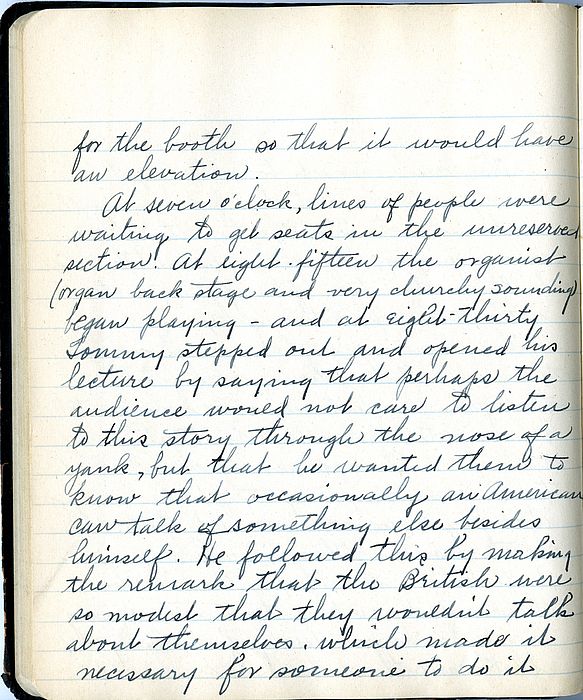 for the booth so that it would have
an elevation.
At seven o'clock, lines of people were
waiting to get seats in the unreserved
section. At eight-fifteen the organist
(organ back stage and very churchy sounding)
began playing - and at eight-thirty
Tommy stepped out and opened his
lecture by saying that perhaps the
audience would not care to listen
to this story through the nose of a
yank, but that he wanted them to
know that occasionally an American
can talk of something else besides
himself. He followed this by making
the remark that the British were
so modest that they wouldn't talk
about themselves, which made it
necessary for someone to do it